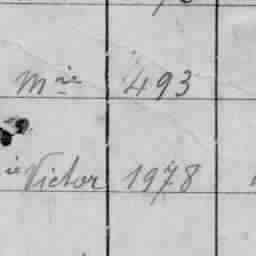 Mie 493
ie Victor 1978